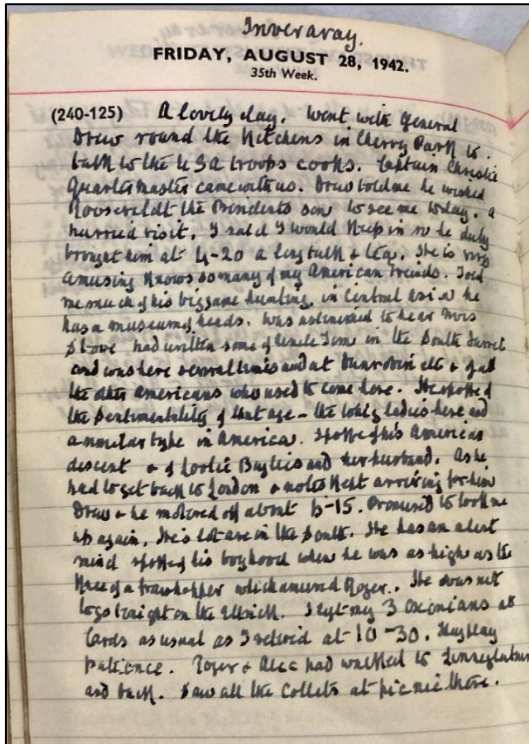 Inveraray.
FRIDAY, AUGUST 28, 1942.
35th Week.
(240-125) A lovely day. Went with General
Drew round the Kitchens in Cherry Park to
talk to the USA troops cooks. Captain Christie
Quartermaster came with us. Drew told me he wished
Roosevelt the Presidents son to see me today. A
hurried visit. I said I would keep in so he duly
brought him at 4-20 a long talk & tea. He is very
amusing knows so many of my American friends. Told
me much of his big game hunting, in Central Asia he
has a museum of heads. Was astonished to hear Mrs
Stowe had written some of Uncle Toms in the South Turret
and was here several times and at Dunrobin etc & of all
the other Americans who used to come here. He spoke of
the sentimentality of that age - the ladies here and
a similar type in America. Spoke of his American
descent & of and her husband. As he
had to get back to London & notes kept arriving for him
Drew & he motored off about 6-15. Promised to look me
up again. He has an alert
mind spoke of his boyhood when he was as high as the
knee of a grasshopper which amused Roger. He was not
on the . I left my 3 Oxonians at
Cards as usual as I retired at 10-30. They play
patience. Roger & Alec had walked to
and back. Saw all the at picnic there.